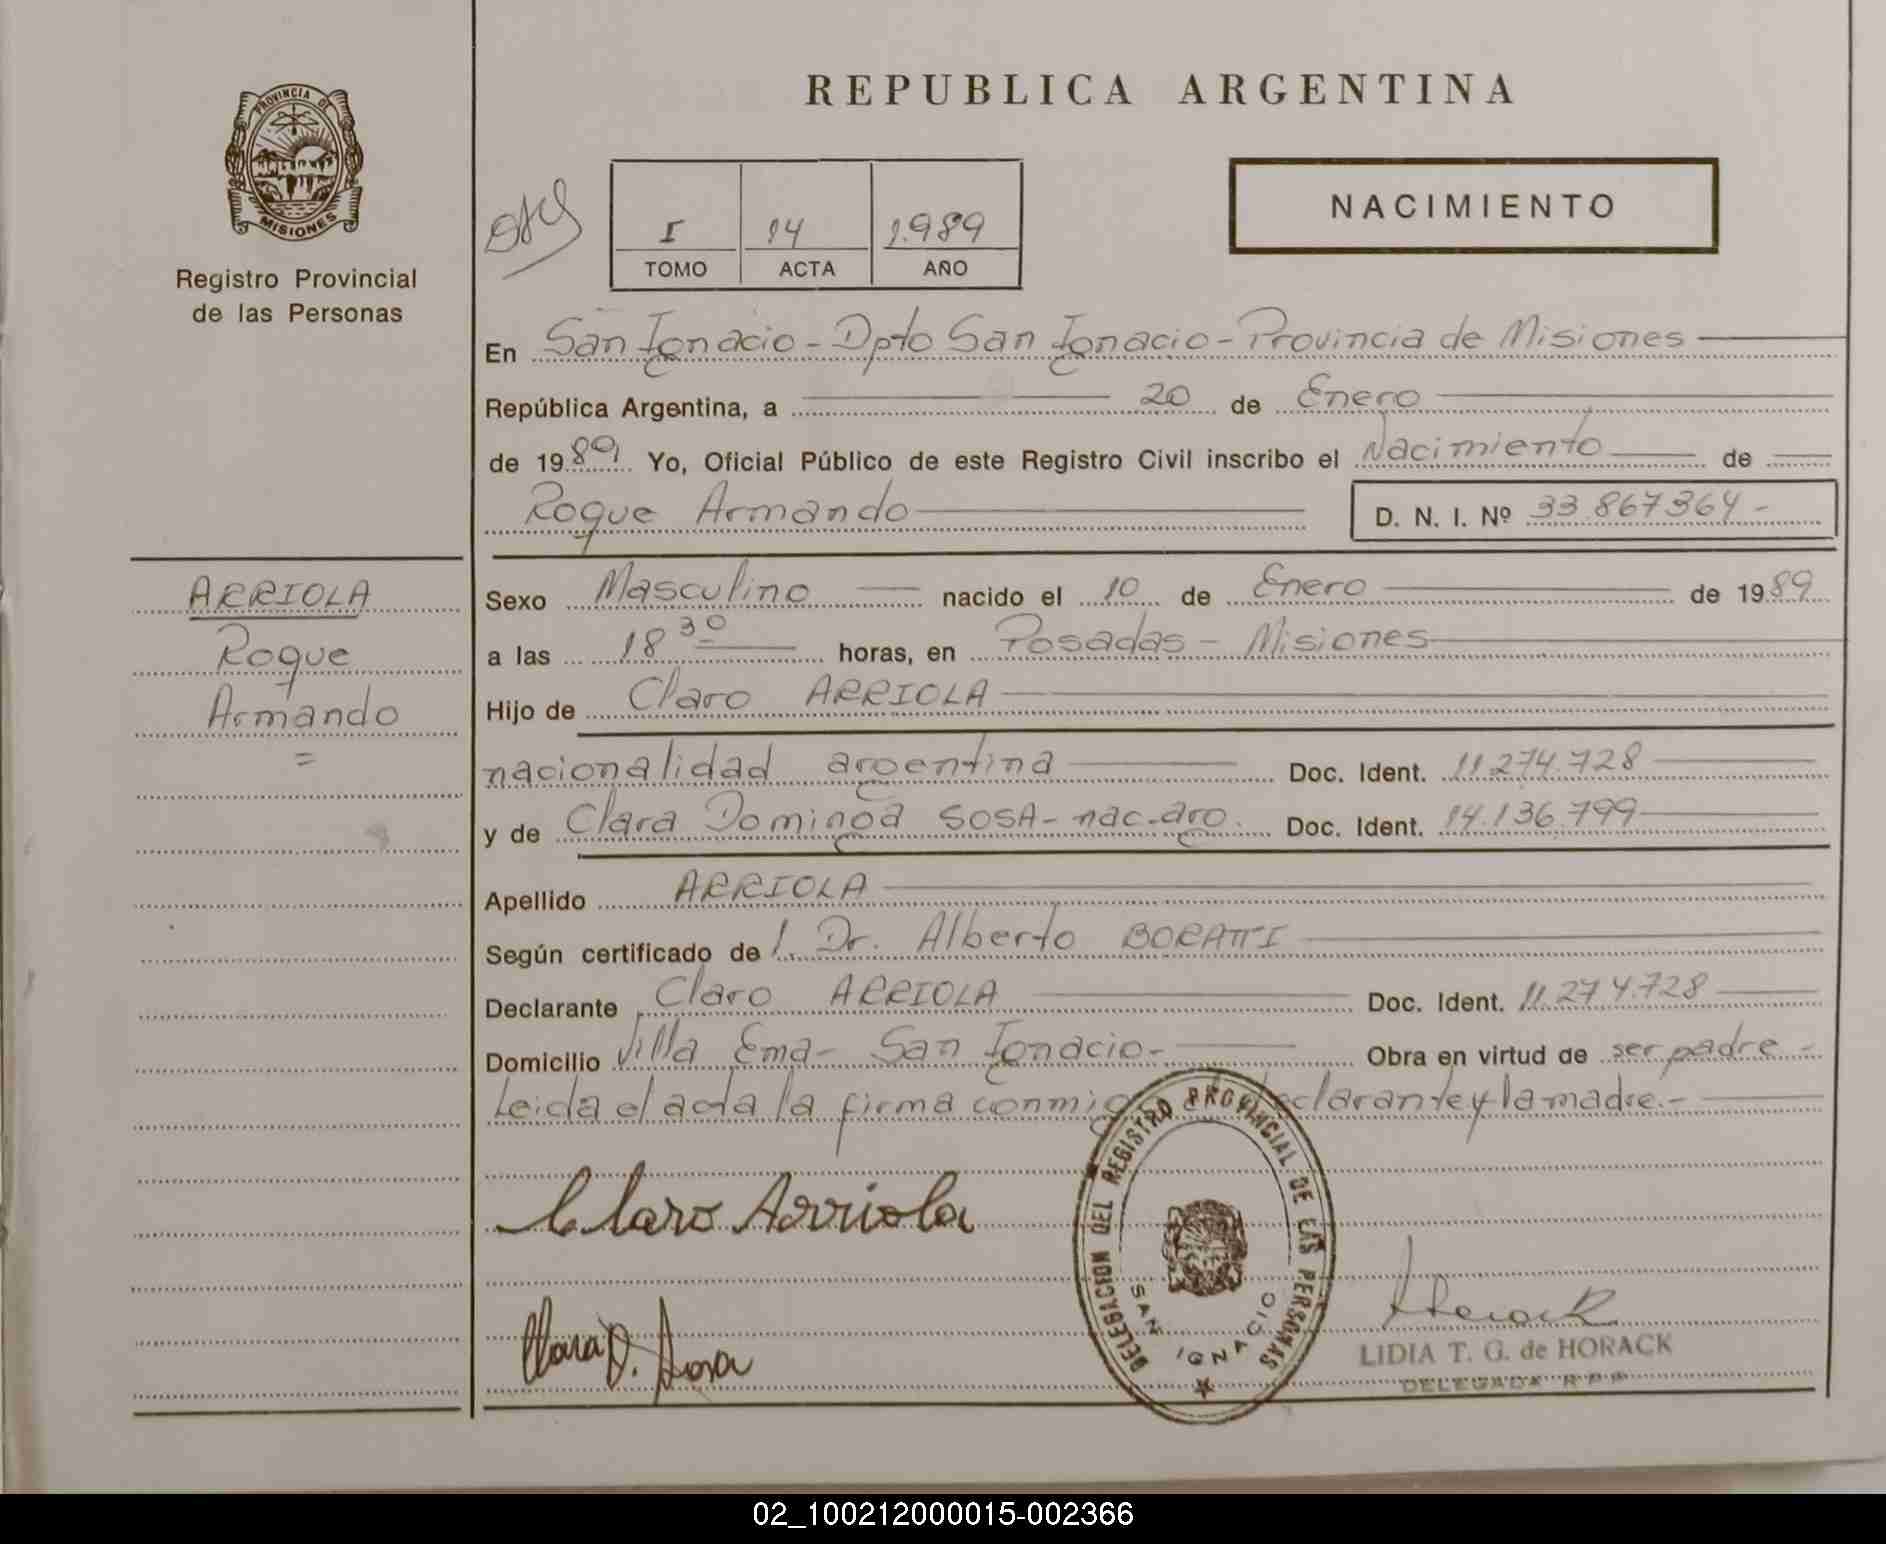 PROVINCIA DE
MISIONES
Registro Provincial
de las Personas
REPUBLICA ARGENTINA
I 14 1.989
TOMO ACTA AÑO
NACIMIENTO
En San Ignacio - Dpto San Ignacio - Provincia de Misiones
República Argentina, a 20 de Enero
de 1989 Yo, Oficial Público de este Registro Civil inscribo el Nacimiento de
Roque Armando D. N. I. Nº 33.867364 -
ARRIOLA
Roque
Armando
=
Sexo Masculino nacido el 10 de Enero de 1989
a las 18 30 horas, en Posadas - Misiones
Hijo de Claro ARRIOLA
nacionalidad argentina Doc. Ident. 11.274.728
y de Clara Dominga SOSA - nac. arg. Doc. Ident. 14.136.799
Apellido ARRIOLA
Según certificado de l Dr. Alberto BORATTI
Declarante Claro ARRIOLA Doc. Ident. 11.274.728
Domicilio Villa Ema - San Ignacio - Obra en virtud de ser padre -
Leida el acta la firma conmigo el declarante y la madre. -
Claro Arriola
DELEGACION DEL REGISTRO PROVINCIAL DE LAS PERSONAS
SAN IGNACIO
Clara D. Sosa
Horack
LIDIA T. G. de HORACK
DELEGADA R P P
02_100212000015-002366